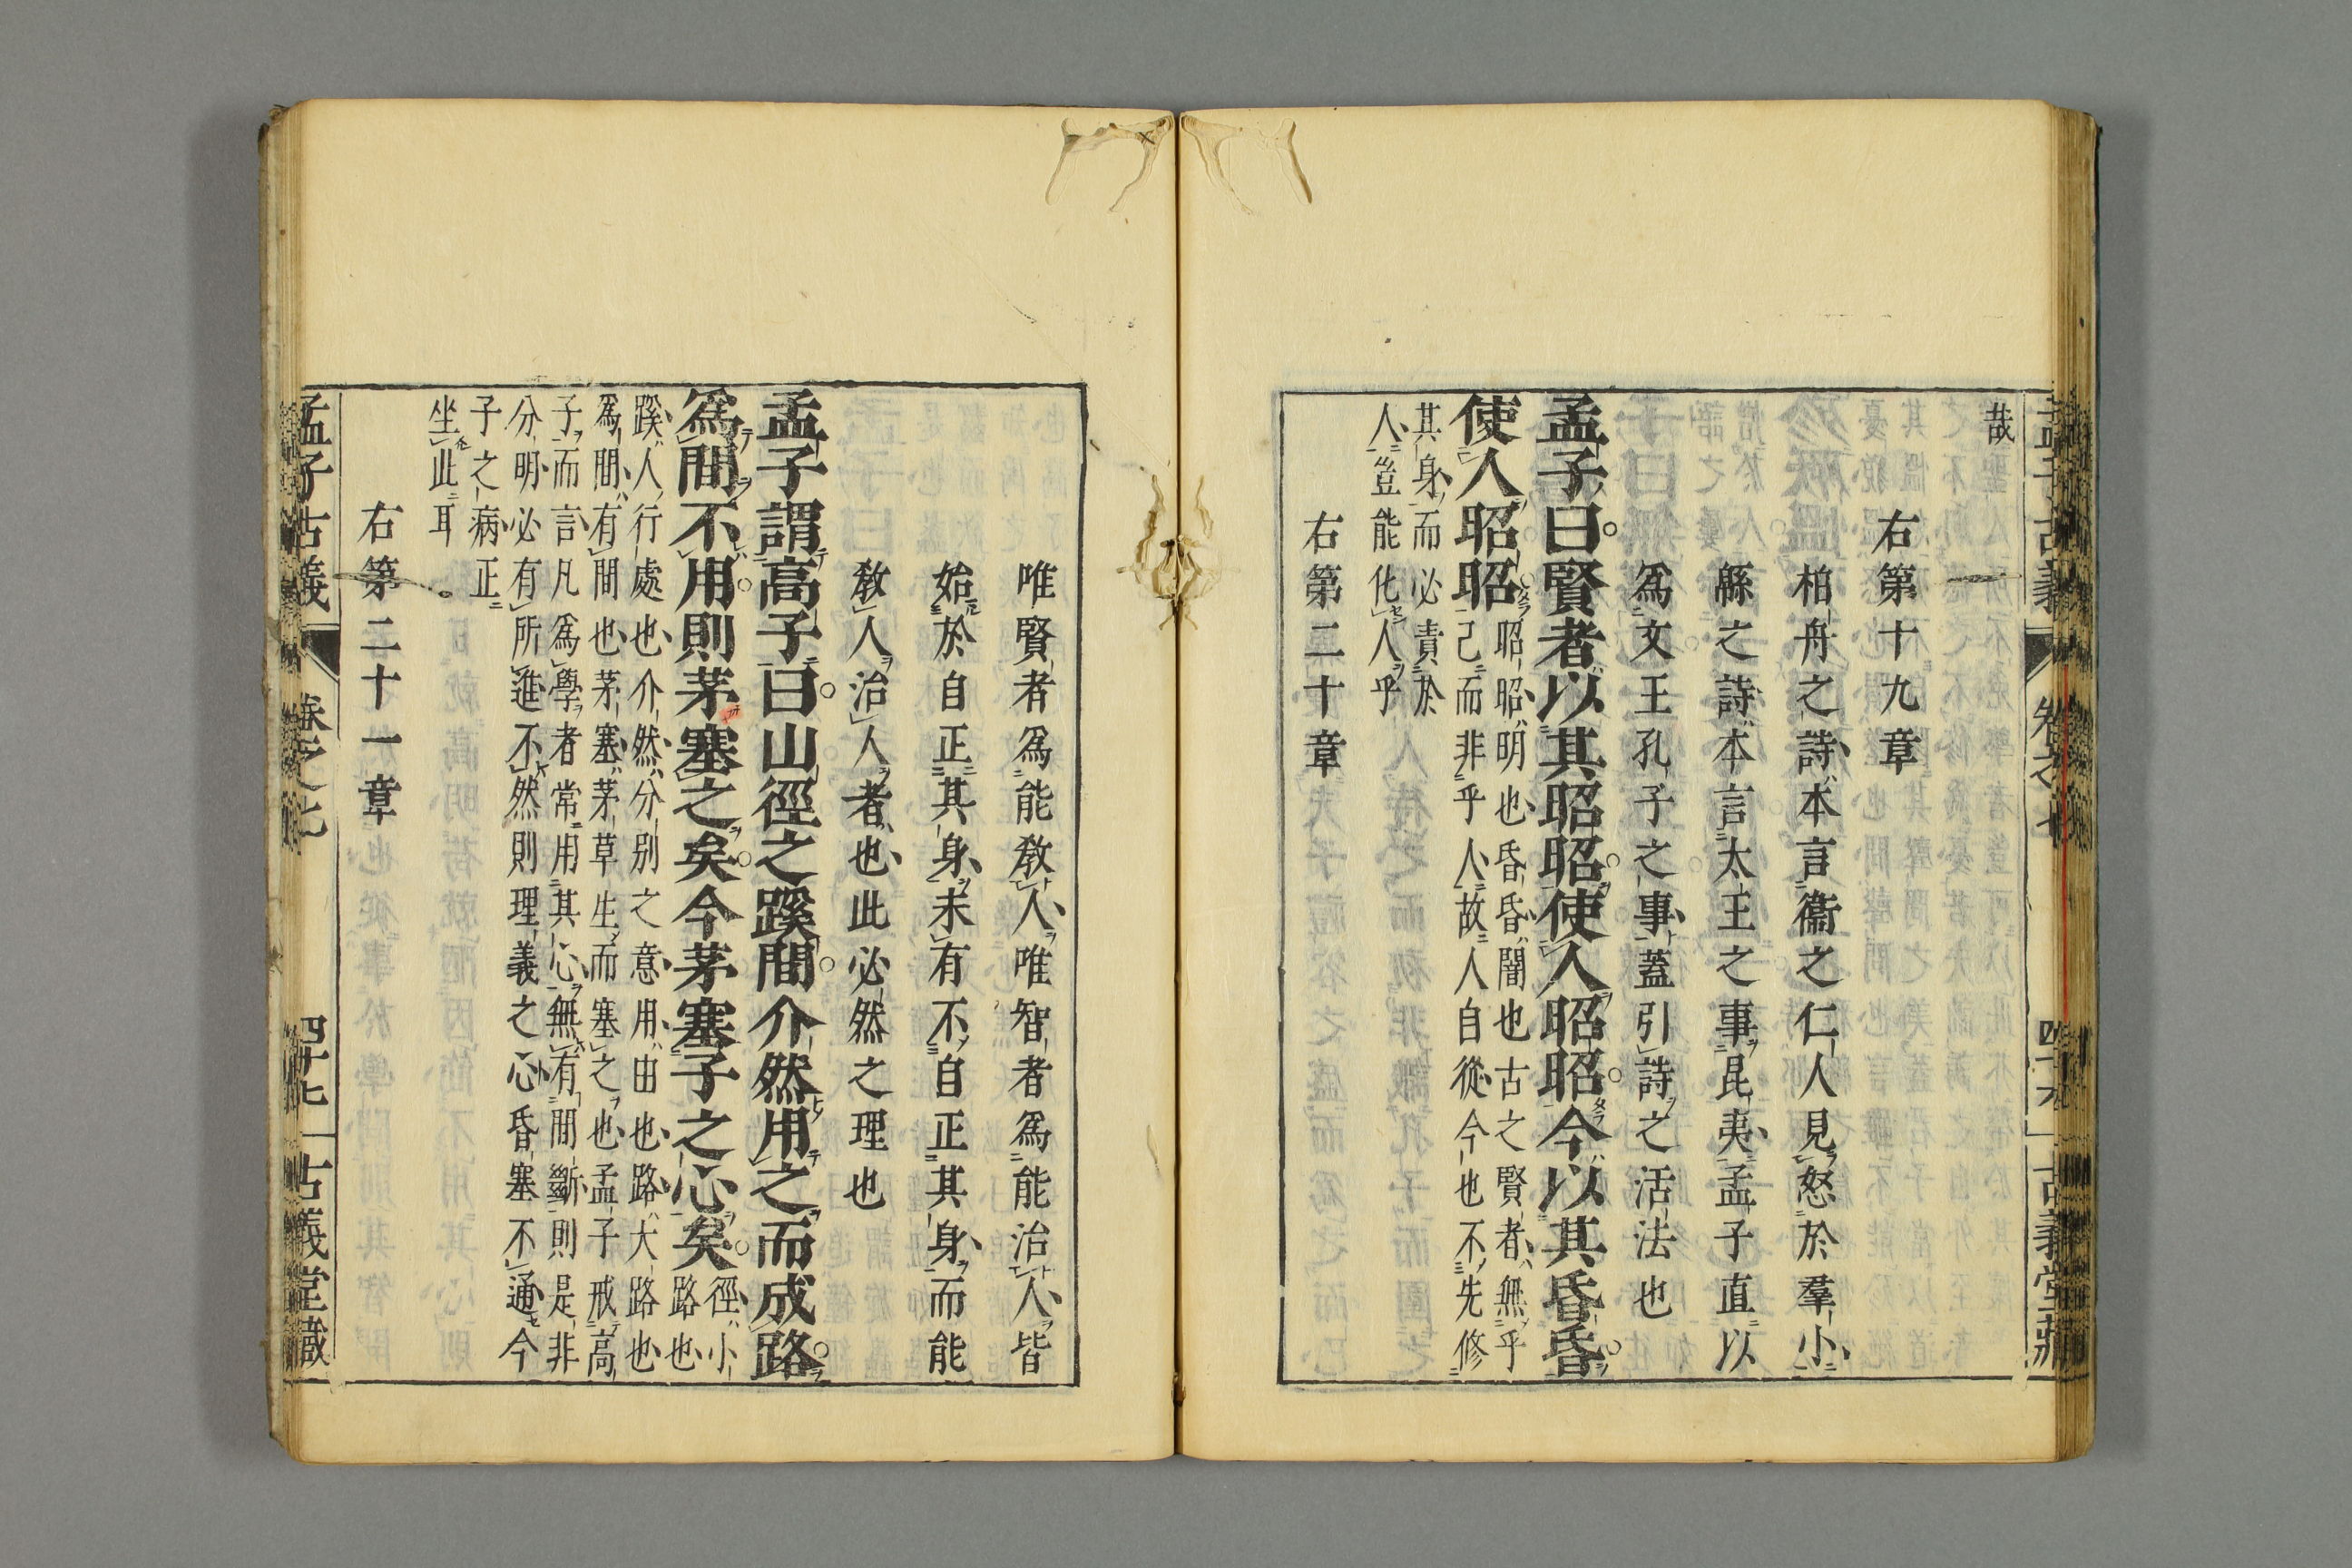 哉
右第十九章
柏舟之詩本言衞之仁人見怒於羣小
緜之詩本言太王之事昆夷孟子直以
爲文王孔子之事蓋引詩之活法也
孟子曰賢者以其昭昭使人昭昭今以其昏昏
使人昭昭
昭昭明也昏昏闇也古之賢者無乎
己而非乎人故人自從今也不先修
其身而必責於
人豈能化人乎
右第二十章
唯賢者爲能敎人唯智者爲能治人皆
始於自正其身未有不自正其身而能
敎人治人者也此必然之理也
孟子謂高子曰山徑之蹊間介然用之而成路
爲間不用則茅塞之矣今茅塞子之心矣
徑小
路也
蹊人行處也介然分別之意用由也路大路也
爲間有間也茅塞茅草生而塞之也孟子戒高
子而言凡爲學者常用其心無有間斷則是非
分明必有所進不然則理義之心昏塞不通今
子之病正
坐此耳
右第二十一章
孟子古義
卷之七
四十七
古義堂藏